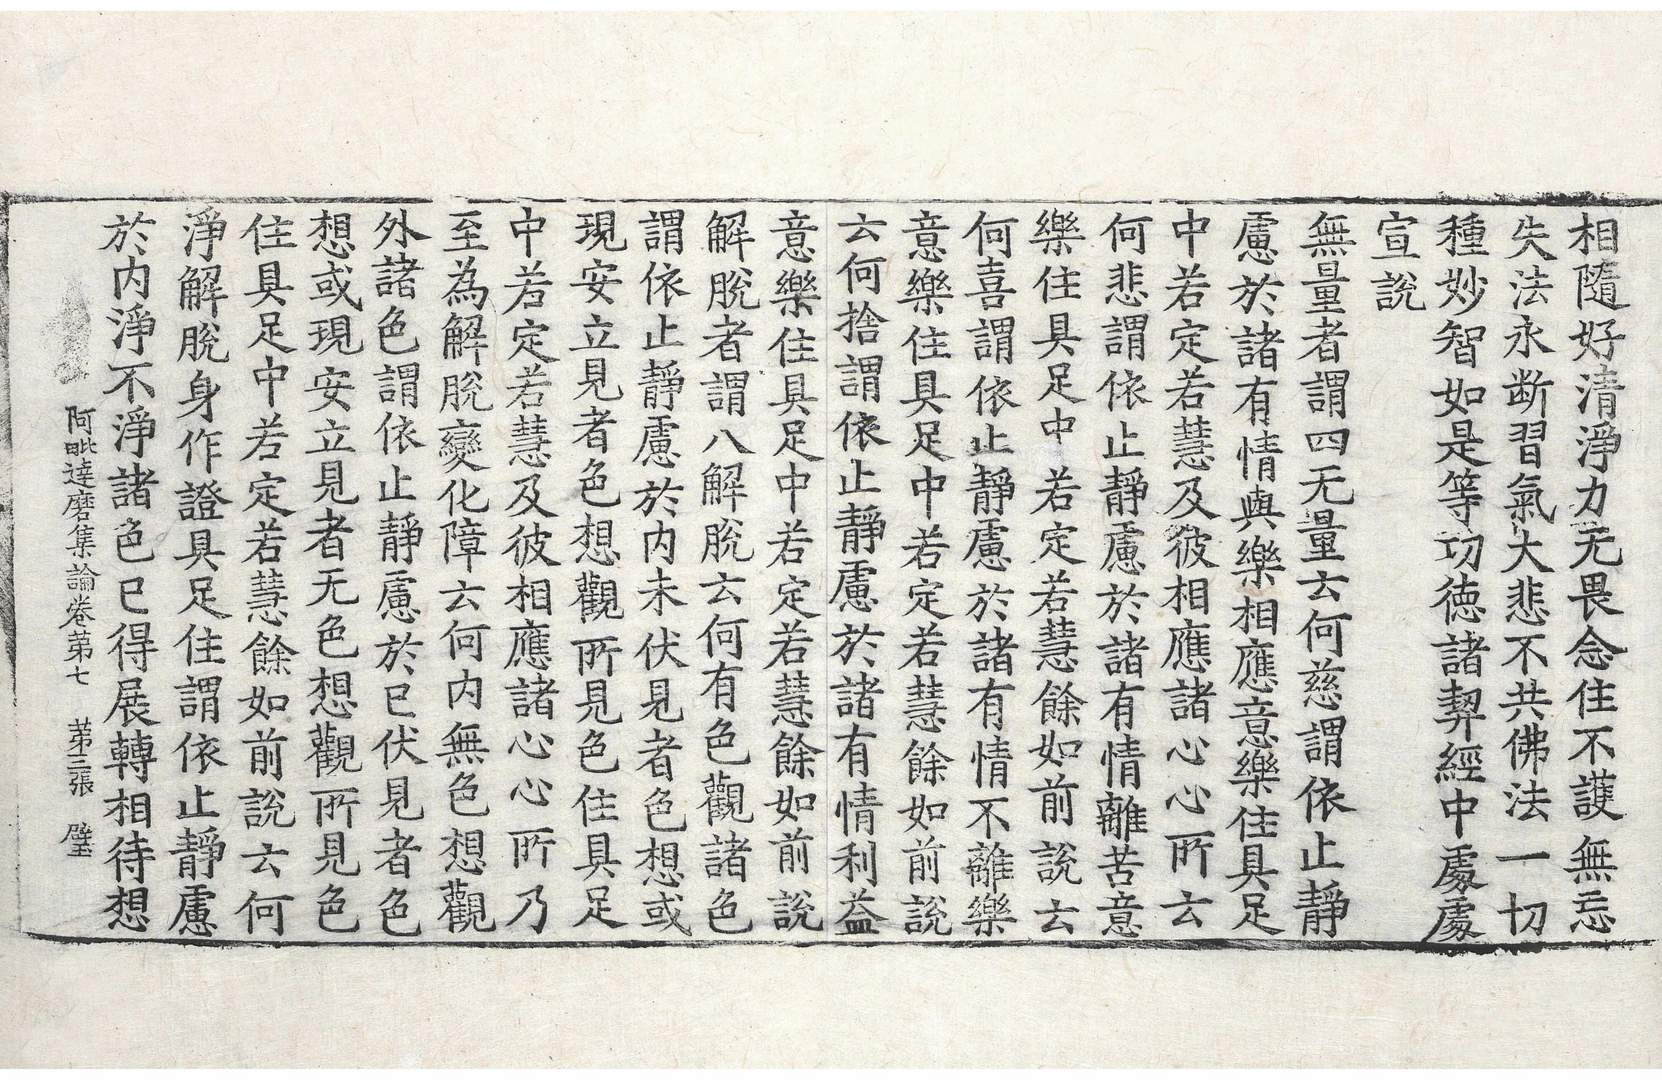 相隨好清淨力无畏念住不護無忘
失法永断習氣大悲不共佛法一切
種妙智如是等功德諸契經中處處
宣說
無量者謂四无量云何慈謂依止靜
慮於諸有情與樂相應意樂住具足
中若定若慧及彼相應諸心心所云
何悲謂依止靜慮於諸有情離苦意
樂住具足中若定若慧餘如前說云
何喜謂依止靜慮於諸有情不離樂
意樂住具足中若定若慧餘如前說
云何捨謂依止靜慮於諸有情利益
意樂住具足中若定若慧餘如前說
解脫者謂八解脫云何有色觀諸色
謂依止靜慮於內未伏見者色想或
現安立見者色想觀所見色住具足
中若定若慧及彼相應諸心心所乃
至為解脫變化障云何內無色想觀
外諸色謂依止靜慮於已伏見者色
想或現安立見者无色想觀所見色
住具足中若定若慧餘如前說云何
淨解脫身作證具足住謂依止靜慮
於內淨不淨諸色已得展轉相待想
阿毗達磨集論卷第七 第三張 璧